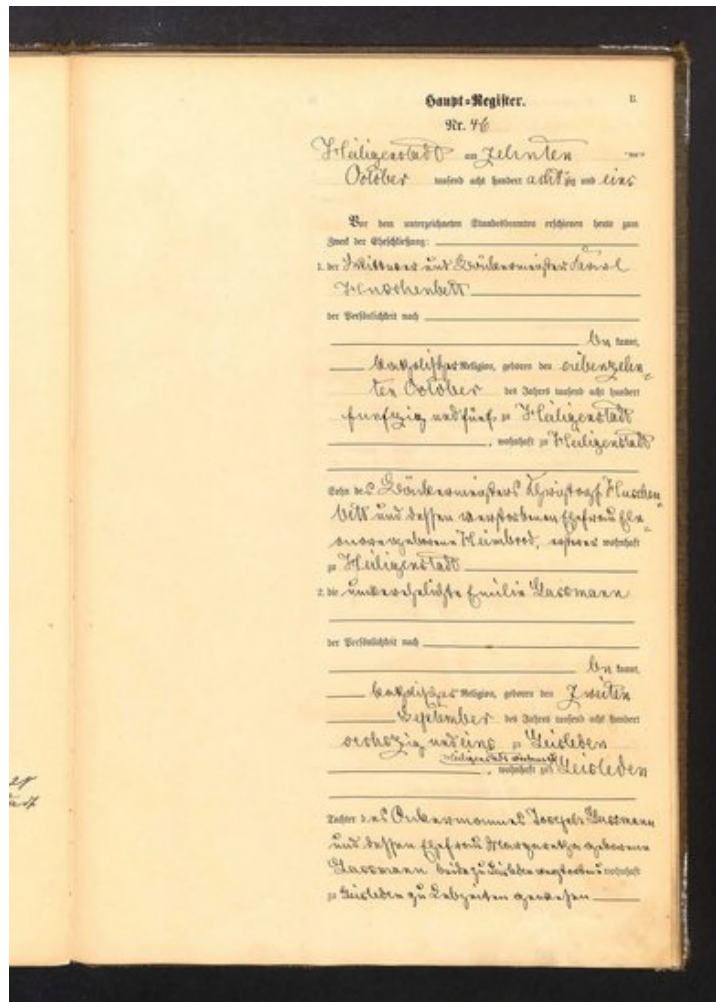 Haupt-Register.
B.
Nr. 46
Heiligenstadt am zehnten
October tausend acht hundert achtzig und eins
Vor dem unterzeichneten Standesbeamten erschienen heute zum
Zweck der Eheschließung:
1. der Wittwer und Bäckermeister Karl
Huschenbett
der Persönlichkeit nach
be kannt,
katholischer Religion, geboren den siebenzehn-
ten October des Jahres tausend acht hundert
funfzig und fünf zu Heiligenstadt
, wohnhaft zu Heiligenstadt
Sohn des Bäckermeisters Christoph Huschen-
bett und dessen verstorbenen Ehefrau Ele-
onore geborene Heimbrod, ersterer wohnhaft
zu Heiligenstadt
2. die unverehelichte Emilie Gassmann
der Persönlichkeit nach
be kannt,
katholischer Religion, geboren den zweiten
September des Jahres tausend acht hundert
sechszig und eins zu Geisleden
Heiligenstadt
, wohnhaft zu Geisleden
Tochter des Ackermannes Joseph Gassmann
und dessen Ehefrau Margaretha geborene
Gassmann beide zu Geisleden verstorben wohnhaft
zu Geisleden zu Lebzeiten gewesen